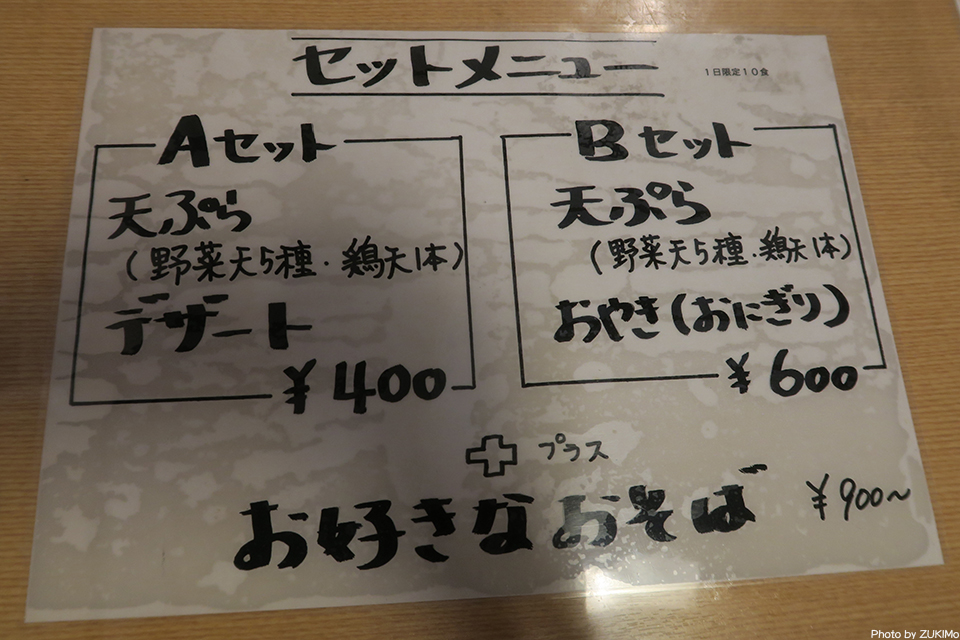 セットメニュー
1日限定10食
Aセット
天ぷら
(野菜天5種・鶏天1本)
デザート
¥400
Bセット
天ぷら
(野菜天5種・鶏天1本)
おやき(おにぎり)
¥600
プラス
お好きなおそば
¥900〜
Photo by ZUKIMo